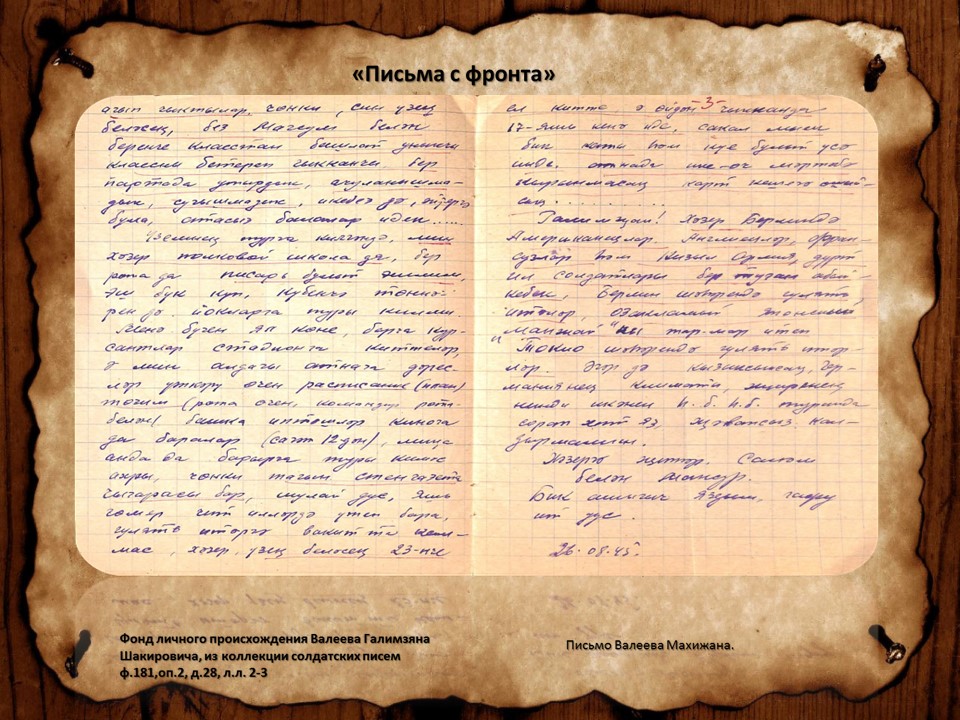 «Письма с фронта»
агып чыктылар. чөнки, син үзең
белесең, без Магсум белән
беренче класстан башлап унынчы
классны бетереп чыкканчы бер
партада утырдык, ачуланышма-
дык, сугышмадык, икебез дә
була, атасыз балалар идек.....
килгәндә, мин
хәзер полковой школа да, бер
рота да писарь булып эшлим,
эш бик күп,
рен дә. йокларга туры килми.
Менә бүген ял көне, барча кур-
сантлар стадионга киттеләр,
ә мин алдагы атнага дәрес-
ләр үткәрү өчен расписание (план)
төзим (рота өчен, командир рота
белән) башка иптәшләр кинога
да баралар (сәгат 12 дән), миңа
анда да барырга туры килмәс
ахры, чөнки тагын стенгазета
чыгарасы бар, шулай дус, яшь
гомер чит илләрдә үтеп бара,
гулять итәргә вакыт та кал-
мас, хәзер, үзең беләсең 23-нче
3
ел китте, ә өйдән чыкканда
17-яшь кенә иде, сакал мыек
бик каты һәм куе булып үсә
инде. атнада ике-өч мәртәбә
кырынмасаң карт кешегә охшый-
саң..........
Галимҗан! Хәзер Берлинда
Американецлар, Англичанлар, Фран-
сузлар һәм Кызыл Армия, дүрт
ил солдатлары бер туган абый-
кебек, Берлин шәһрендә гулять
итәләр,
тар-мар итеп
Токио шәһрендә гулять итәр-
ләр. Әгәр дә кызыксынсаң, Гер-
маниянең климаты, җирләренең
нинди икәнен һ.б. һ.б. турында
сорап хат яз, җавапсыз кал-
дырмамын.
Хәзергә җитәр. Сәлам
белән Мансур.
Бик ашыгыч яздым, гафу
ит дус.
26.08.45.
Фонд личного происхождения Валеева Галимзяна
Шакировича, из коллекции солдатских писем
ф.181,оп.2, д.28, л.л. 2-3
Письмо Валеева Махижана.